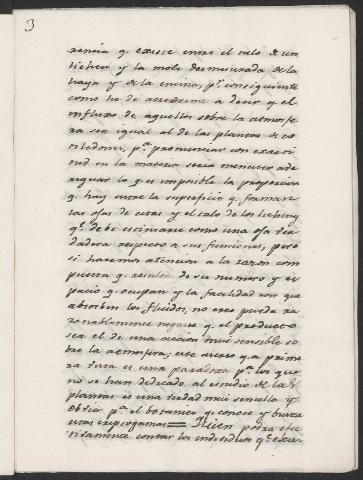 3
rencia q. existe entre el talo de un
lichen y la mole desmesurada de la
haya y de la encina, p.r consiguiente
como he de atreverme a decir q. el
influxo de aquellos sobre la atmosfe
ra sea igual al de las plantas de co
tiledones, p.a pronunciar con exacti
tud en la materia seria menester ade
riguar lo q. es imposible la proporcion
q. hay entre la superficie q. forman
las ojas de estas y el talo de los lichenes
q.e debe estimarse como una oja ver
dadera respecto a sus funciones, pero
si hacemos atencion a la razon com
puesta q. resulta de su numero y es
pacio q. ocupan y la facilidad con que
absorben los fluidos, no creo pueda ra
zonablemente negarse q. el producto
sea el de una accion mui sensible so
bre la atmosfera; este aserto q. a prime
ra vista es una paradoxa p.a los que
no se han dedicado al estudio de las
plantas es una verdad mui sencilla y
obvia p.a el botanico q. conoce y busca
estas criptogamas = Quien podra efec
tivamente contar los individuos q.e